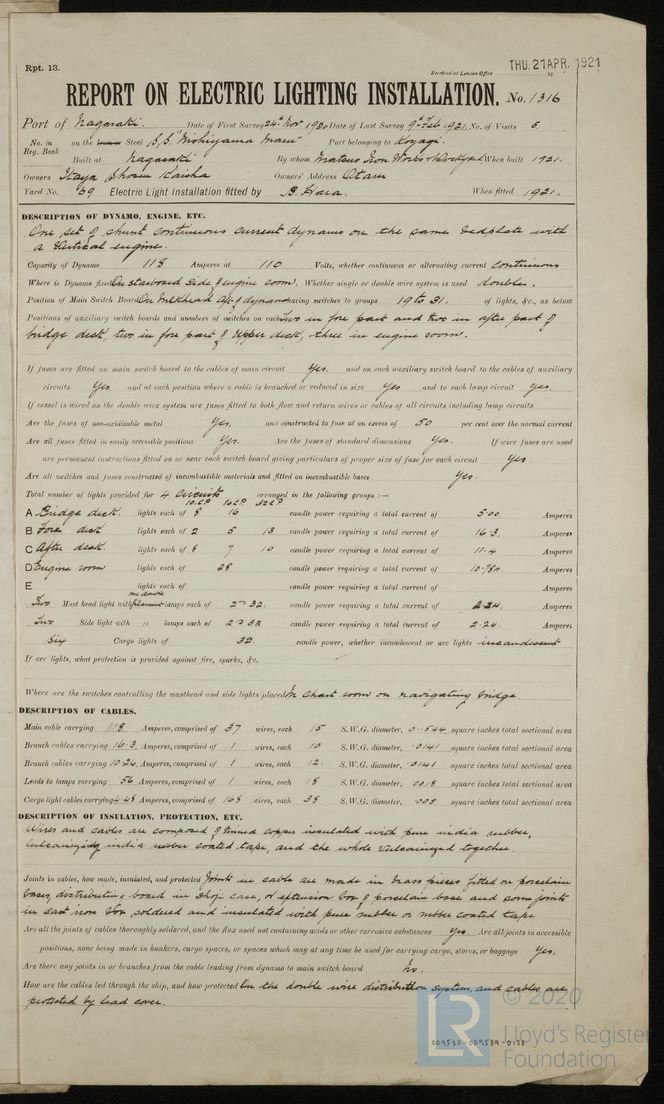 Rpt. 13.
Received at London Office
THU. 21 APR. 1921
REPORT ON ELECTRIC LIGHTING INSTALLATION. No. 1316
Port of Nagasaki. Date of First Survey 24th Nov 1920 Date of Last Survey 9th Feb 1921. No. of Visits 5.
No. in Reg. Book on the Iron Steel S.S. "Nishiyama Maru" Port belonging to Koyagi.
Built at Nagasaki By whom Matsuo Iron Works & Dockyard When built 1921.
Owners Itaya Shosen Kaisha Owners' Address Otaru
Yard No. 69 Electric Light Installation fitted by G. Hara. When fitted 1921.
DESCRIPTION OF DYNAMO, ENGINE, ETC.
One set of shunt continuous current dynamo on the same bedplate with
a vertical engine.
Capacity of Dynamo 118 Amperes at 110 Volts, whether continuous or alternating current continuous
Where is Dynamo fixed On starboard side of engine room. Whether single or double wire system is used double.
Position of Main Switch Board On bulkhead aft of dynamo having switches to groups 19 to 31. of lights, &c., as below
Positions of auxiliary switch boards and numbers of switches on each Two in fore part and two in after part of
bridge deck, two in fore part of upper deck, three in engine room.
If fuses are fitted on main switch board to the cables of main circuit Yes. and on each auxiliary switch board to the cables of auxiliary
circuits Yes and at each position where a cable is branched or reduced in size Yes and to each lamp circuit Yes.
If vessel is wired on the double wire system are fuses fitted to both flow and return wires or cables of all circuits including lamp circuits
Are the fuses of non-oxidizable metal Yes. and constructed to fuse at an excess of 50 per cent over the normal current
Are all fuses fitted in easily accessible positions Yes. Are the fuses of standard dimensions Yes. If wire fuses are used
are permanent instructions fitted on or near each switch board giving particulars of proper size of fuse for each circuit Yes.
Are all switches and fuses constructed of incombustible materials and fitted on incombustible bases Yes.
Total number of lights provided for 4 circuits arranged in the following groups :—
10 C.P. 16 C.P. 32 C.P.
A Bridge deck. lights each of 8 16 candle power requiring a total current of 5.00. Amperes
B Fore deck lights each of 2 5 13 candle power requiring a total current of 16.3. Amperes
C After deck. lights each of 8 7 10 candle power requiring a total current of 11.4 Amperes
D Engine room lights each of 28 candle power requiring a total current of Amperes
E lights each of candle power requiring a total current of Amperes
Two Mast head light with filament lamps each of 2 32. candle power requiring a total current of 2.24. Amperes
Two Side light with " lamps each of 2 32 candle power requiring a total current of 2.24. Amperes
Six Cargo lights of 32. candle power, whether incandescent or arc lights incandescent
If arc lights, what protection is provided against fire, sparks, &c.
Where are the switches controlling the masthead and side lights placed In chart room on navigating bridge.
DESCRIPTION OF CABLES.
Main cable carrying 118 Amperes, comprised of 37 wires, each 15 S.W.G. diameter, 0.1544 square inches total sectional area
Branch cables carrying 16.3 Amperes, comprised of 1 wires, each 10 S.W.G. diameter, .0141 square inches total sectional area
Branch cables carrying 10.26 Amperes, comprised of 1 wires, each 12. S.W.G. diameter, .0141 square inches total sectional area
Leads to lamps carrying 56 Amperes, comprised of 1 wires, each 18 S.W.G. diameter, .0018 square inches total sectional area
Cargo light cables carrying 4.48 Amperes, comprised of 168 wires, each 38 S.W.G. diameter, .005 square inches total sectional area
DESCRIPTION OF INSULATION, PROTECTION, ETC.
Wires and cables are composed of tinned copper insulated with pure india rubber,
vulcanizing india rubber coated tape, and the whole vulcanized together.
Joints in cables, how made, insulated, and protected Joints in cable are made in brass pieces fitted on porcelain
bases, distributing board in case, or extension box of porcelain base and some joints
in cast iron box soldered and insulated with pure rubber or rubber coated tape
Are all the joints of cables thoroughly soldered, and the flux used not containing acids or other corrosive substances Yes. Are all joints in accessible
positions, none being made in bunkers, cargo spaces, or spaces which may at any time be used for carrying cargo, stores, or baggage Yes.
Are there any joints in or branches from the cable leading from dynamo to main switch board No.
How are the cables led through the ship, and how protected In the double wire distribution system, and cables are
protected by lead cover.
© 2020
LR
Lloyd's Register
Foundation
009580-009589-0138